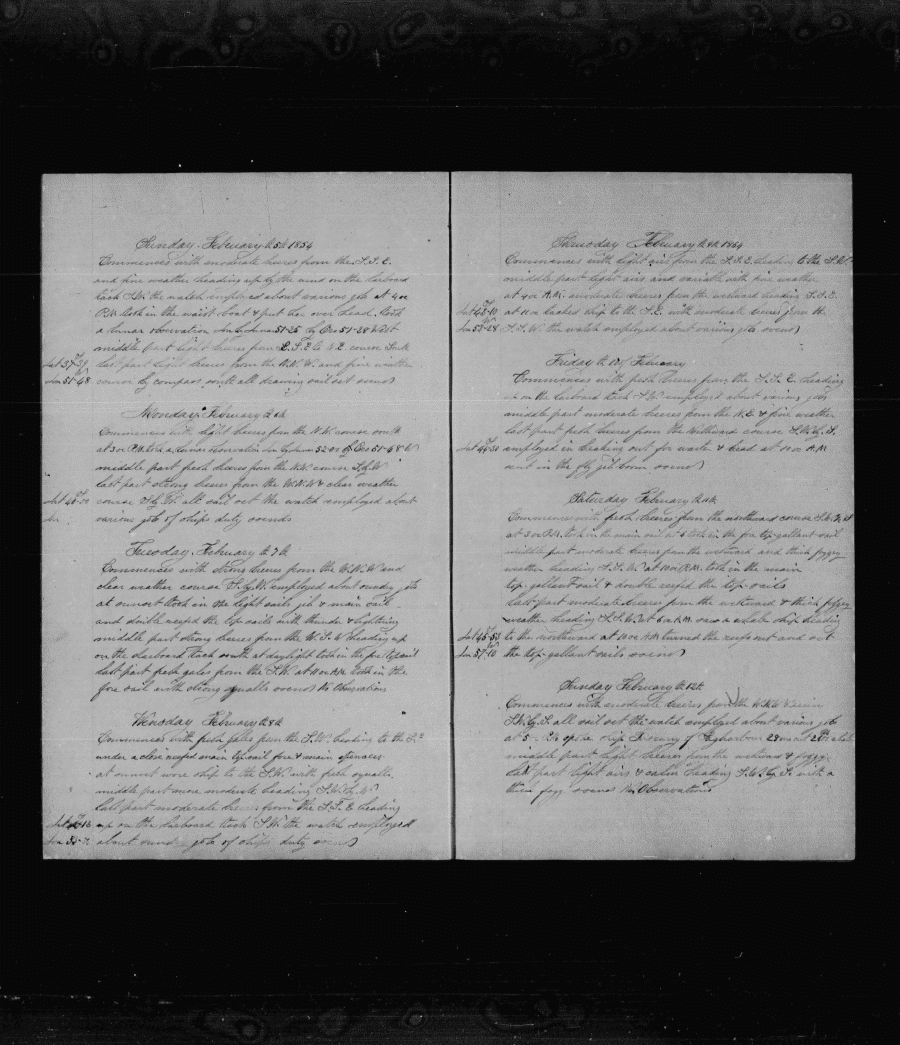 Sunday February th 5th 1854
Commences with moderate breeses from the S.S.E.
and fine weather heading up by the wind on the larboard
tack S.W. the watch employed about various jobs at 4 oc
P.M. took in the waist boat & put her over head. took
a lunar observation Lon by lunar 51-25 by Cro 51-28 West
middle part light breeses from S.S.E to N.E. course South
Lat 37-39 last part light breeses from the N.N.W. and fine weather
Lon 51-48 course by compass south all drawing sail set so ends
Monday February th 6th
Commences with light breeses from the N.W. course south
at 3 oc P.M. took a lunar observation Lon by lunar 52-00 by Cro 51-58 W
middle part fresh breeses from the N.W. course S.by W
last part strong breeses from the W.N.W & clear weather
Lat 40- course S by W. all sail set the watch employed about
Lon various jobs of ships duty so ends
Tuesday February th 7th
Commences with strong breeses from the W.N.W and
clear weather course S.by W. employed about sundry jobs
at sunset took in the light sails jib & main sail
and double reefed the top sails with thunder & lightning
middle part strong breeses from the W.S.W heading up
on the larboard tack south at daylight took in the fore topsail
last part fresh gales from the S.W. at 11 oc A.M. took in the
fore sail with strong squalls so ends No Observations
Wensday February th 8th
Commences with fresh gales from the S.W. heading to the S.E
under a close reefed main topsail fore & main spencer
at sunset wore ship to the S.W. with fresh squalls
middle part more moderate heading S.W. by W
last part moderate breeses from the S.S.E heading
up on the larboard tack S.W. the watch employed
about sundry jobs of ships duty so ends
Thursday February th 9th 1854
Commences with light airs from the S.S.E. heading to the S.W.
middle part light airs and variable with fine weather
at 4 oc A.M. moderate breeses from the westward heading S.S.E.
Lat 42-10 at 11 oc tacked ship to the S.E. with moderate breeses from the
Lon 53-28 S.S.W. the watch employed about various jobs so ends
Friday th 10th of February
Commences with fresh breeses from the S.S.E. heading
up on the larboard tack S.W. employed about various jobs
middle part moderate breeses from the N.E & fine weather
last part fresh breeses from the Northward course S.W. by S.
Lat 44-30 employed in breaking out for water & bread at 11 oc A.M.
sent in the fly jib boom so ends
Saturday February th 11th
Commences with fresh breeses from the northward course S.W. by S
at 3 oc P.M. took in the main sail at 4 took in the fore top-gallant sail
middle part moderate breeses from the westward and thick foggy
weather heading S.S.W. at 10 oc P.M. took in the main
top-gallant sail & double reefed the top-sails
last part moderate breeses from the westward & thick foggy
weather heading S.S.W. at 6 oc A.M. saw a whale ship heading
Lat 45-53 to the northward at 10 oc A.M. turned the reefs out and set
Lon 57-10 the top-gallant sails so ends
Sunday February th 12th
Commences with moderate breeses from the W.N.W. steering
S.W. by S. all sail set the watch employed about various jobs
at 5 oc P.M. spoke ship of Sagharbour 28 mos
middle part light breeses from the westward & foggy
last part light airs & calm heading S.W. by S. with a
thick fogg so ends No Observations